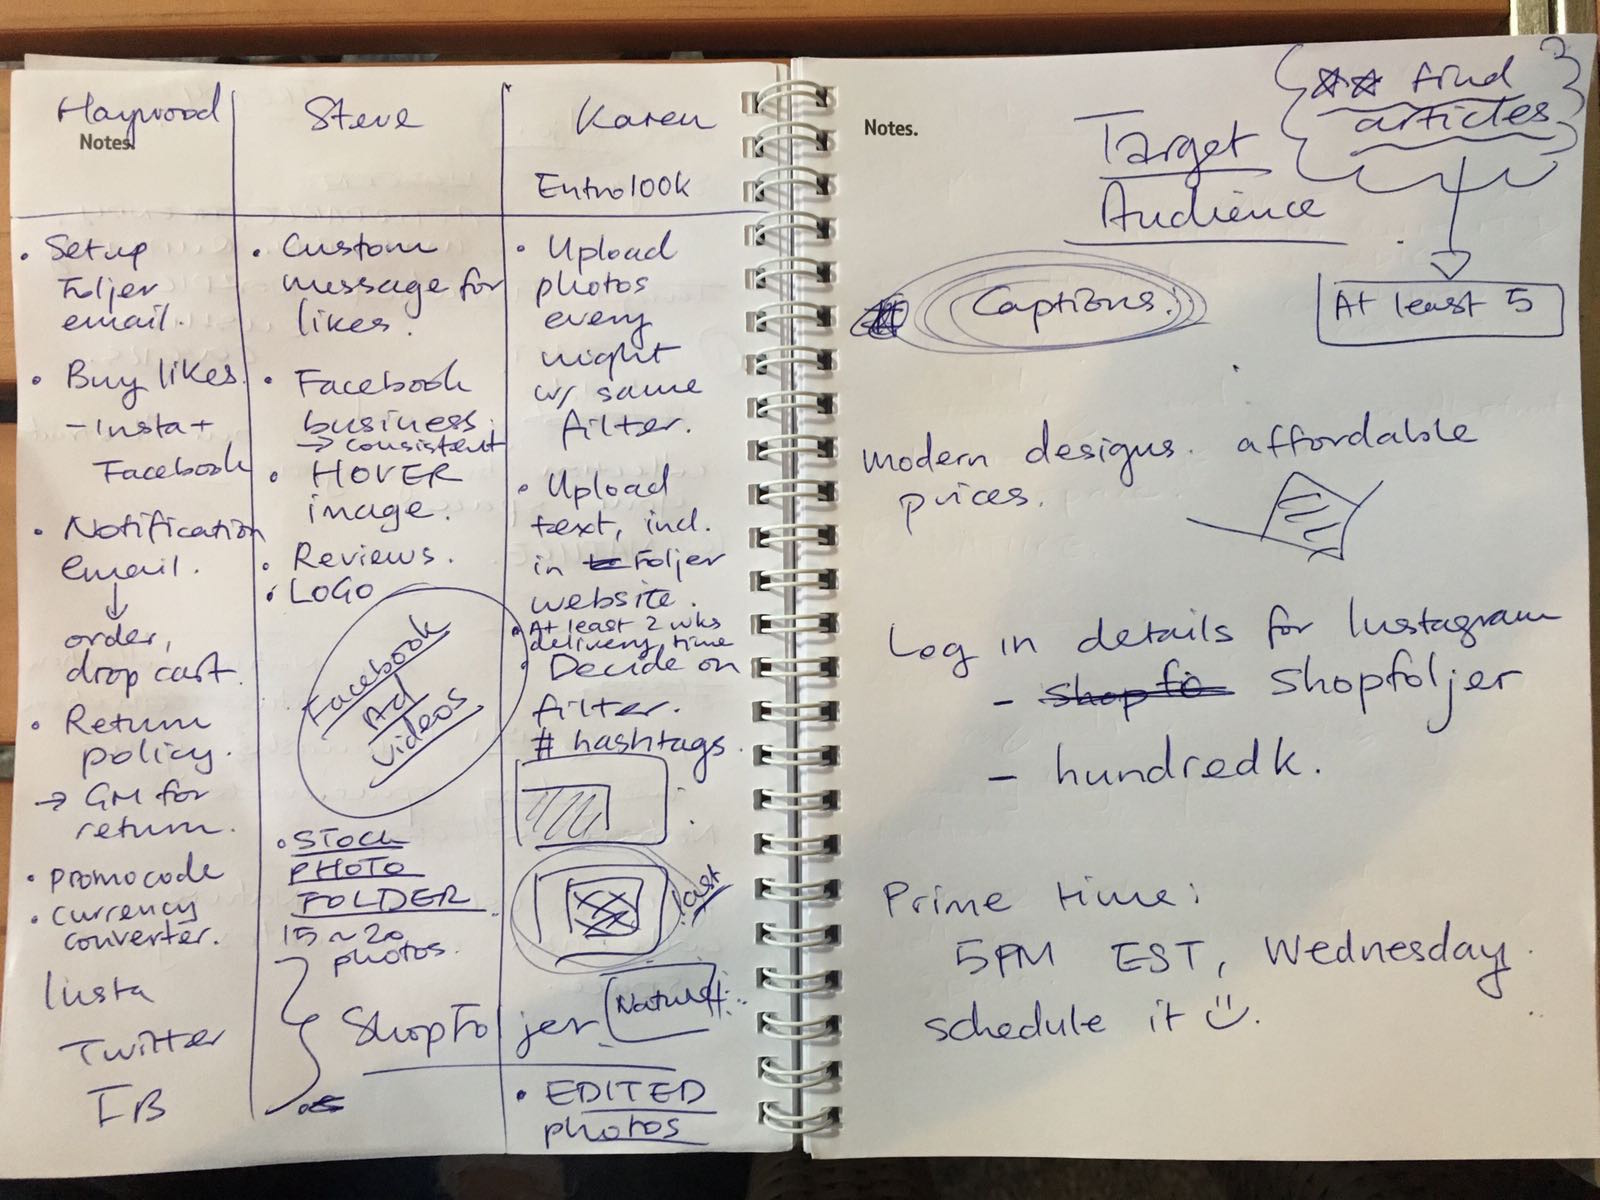 Haywood
Notes.
Set up
Foljer
email.
• Buy likes.
- Insta +
Facebook
• Notification
email.
↓
order,
drop cart.
• Return
policy.
→ GM for
return.
• promocode
• currency
converter.
Insta
Twitter
FB
Steve
• Custom
message for
likes.
• Facebook
business.
→ consistent
• HOVER
image.
• Reviews.
• LOGO
Facebook
Ad
videos
• STOCK
PHOTO
FOLDER
15 ~ 20
photos.
ShopFoljer
Karen
Entro100k
• Upload
photos
every
night
w/ same
filter.
• Upload
text, incl.
in Foljer
website.
• At least 2 wks
delivery time
Decide on
filter.
# hashtags.
last
• EDITED
photos
Notes.
find
articles
Target
Audience
At least 5
Captions!
modern designs. affordable
prices.
Log in details for Instagram
- shop fo shopfoljer
- hundredk.
Prime time:
5PM EST, Wednesday.
schedule it